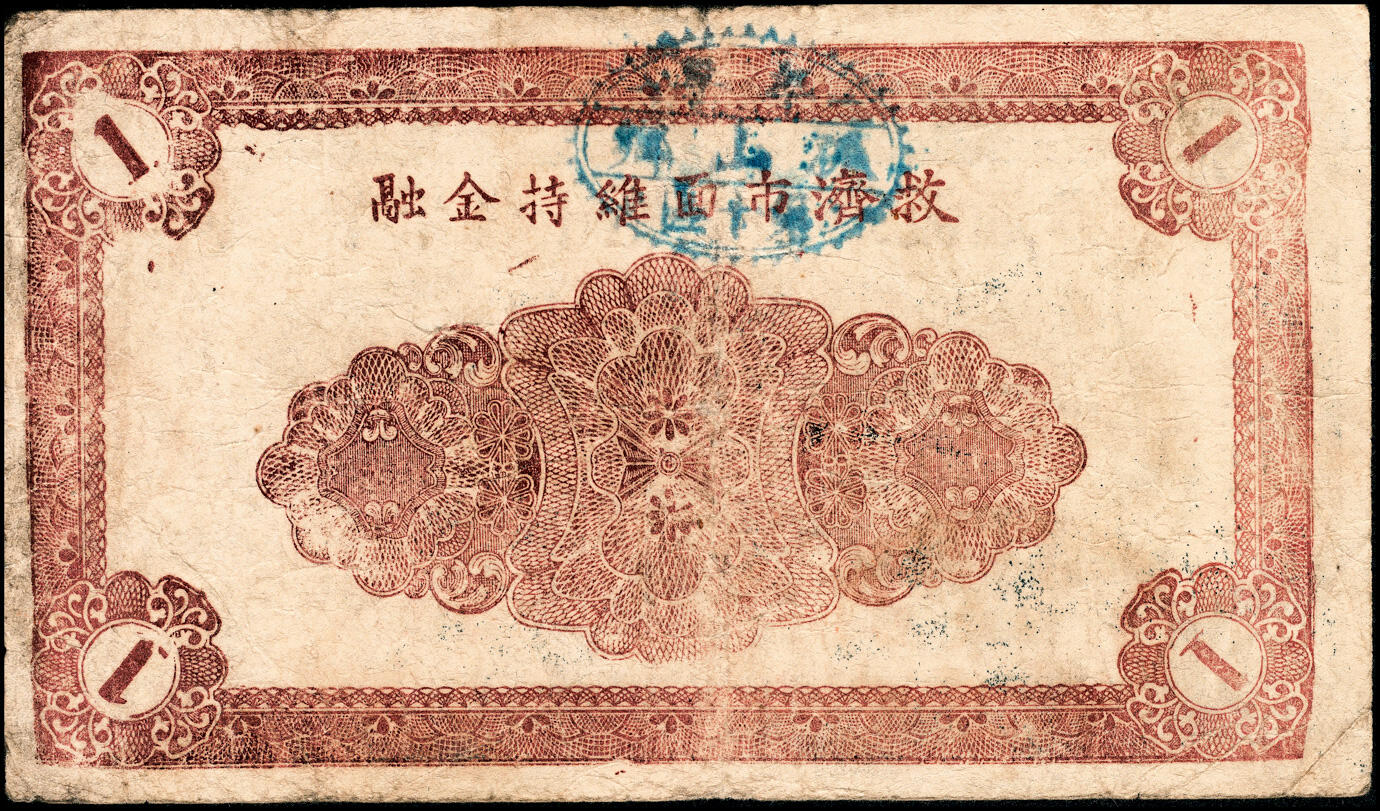 1
1
救濟市面維持金融
1
1